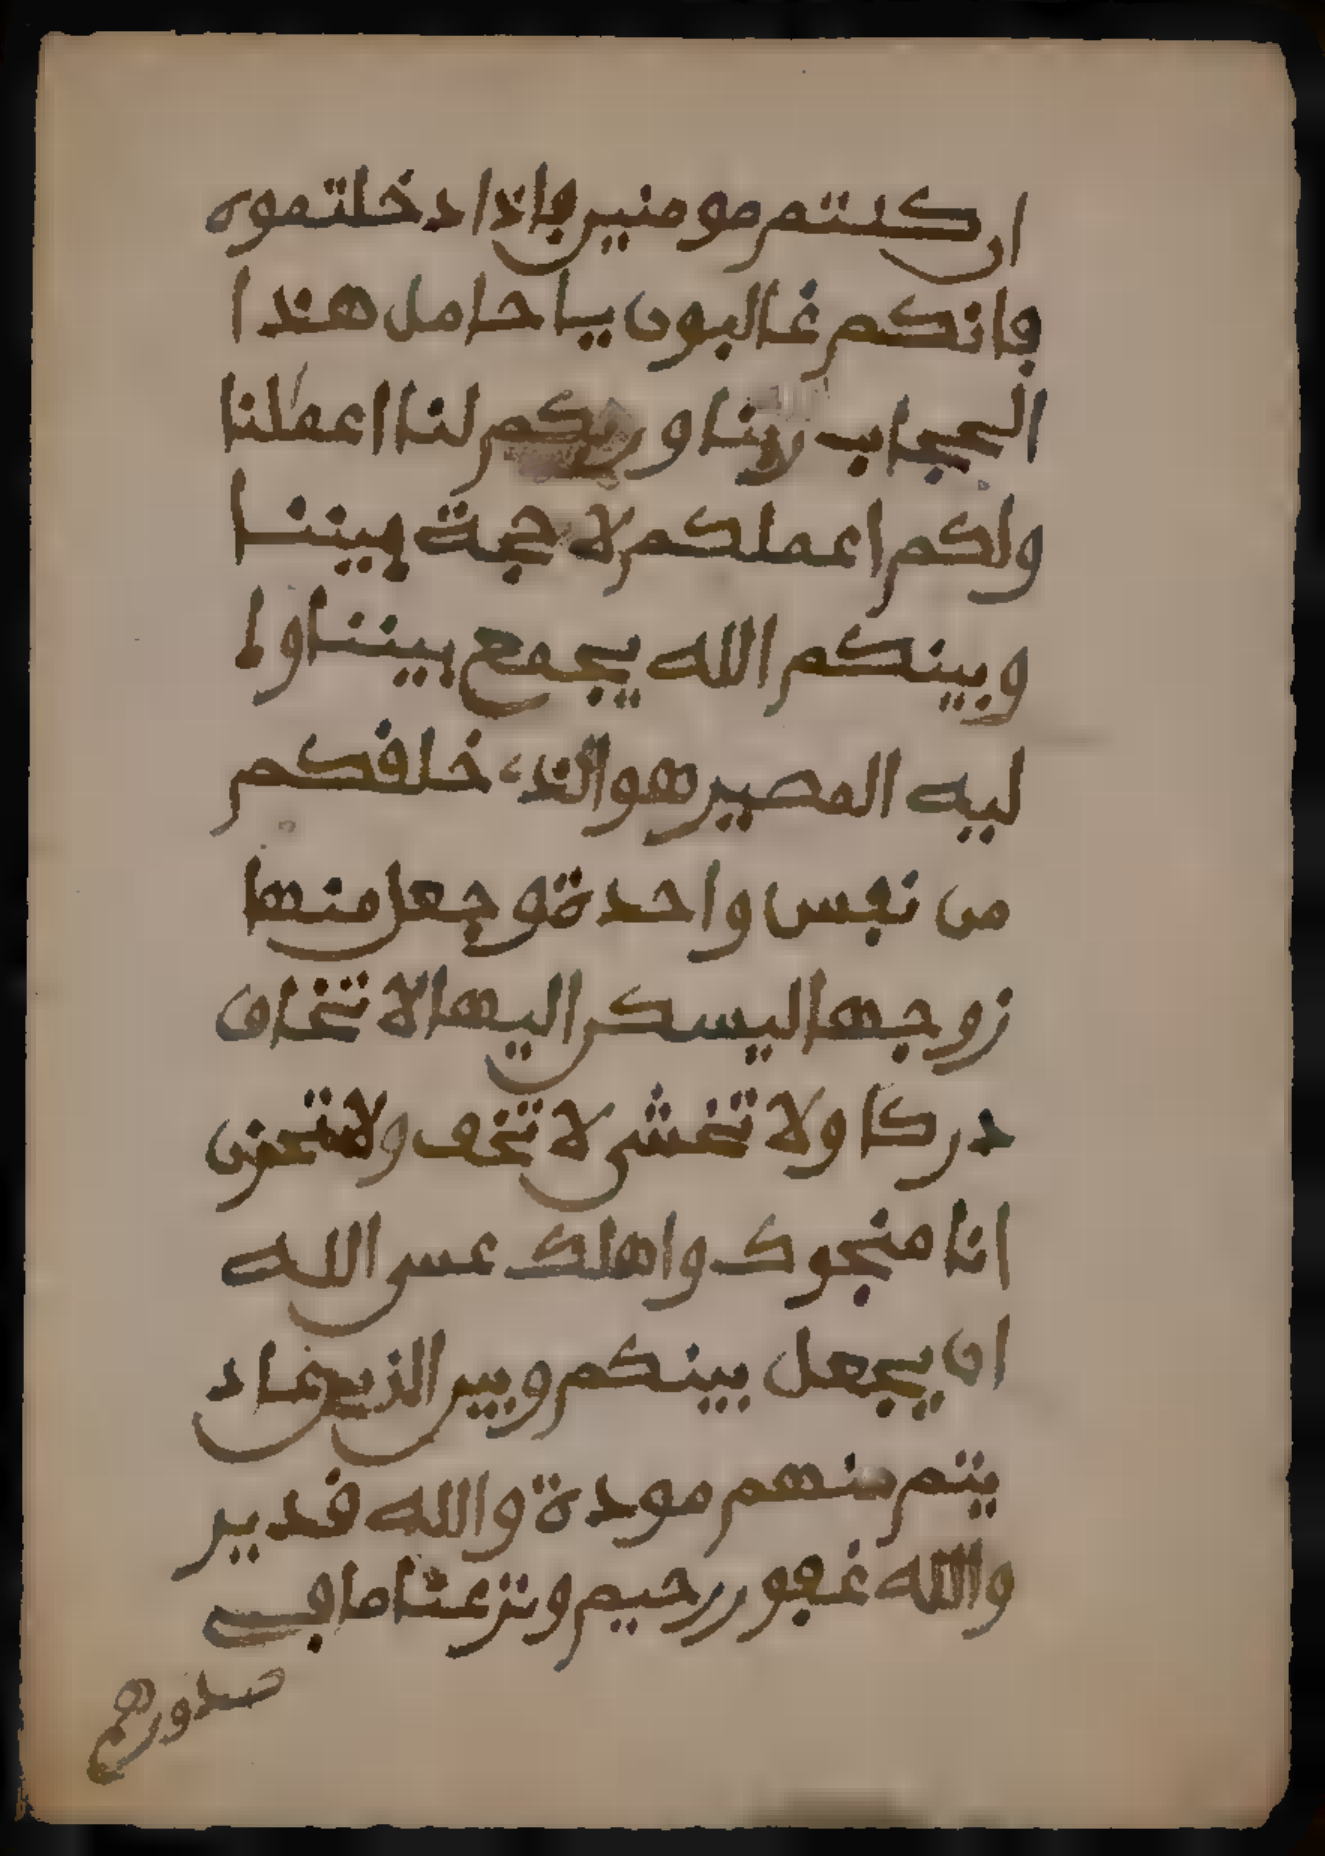 ان كنتم مومنين فاذا دخلتموه
فانكم غالبون يا حامل هذا
الحجاب ربنا وربكم لنا اعملنا
ولكم اعملكم لا حجة بيننا
وبينكم الله يجمع بيننا وا
ليه المصير هو الذى خلقكم
من نفس واحدة وجعل منها
زوجها ليسكن اليها لا تخاف
دركا ولا تخشى لا تخف ولا تحزن
انا منجوك واهلك عسى الله
ان يجعل بينكم وبين الذين عاد
يتم منهم مودة والله قدير
والله غفور رحيم ونزعنا ما في
صدورهم